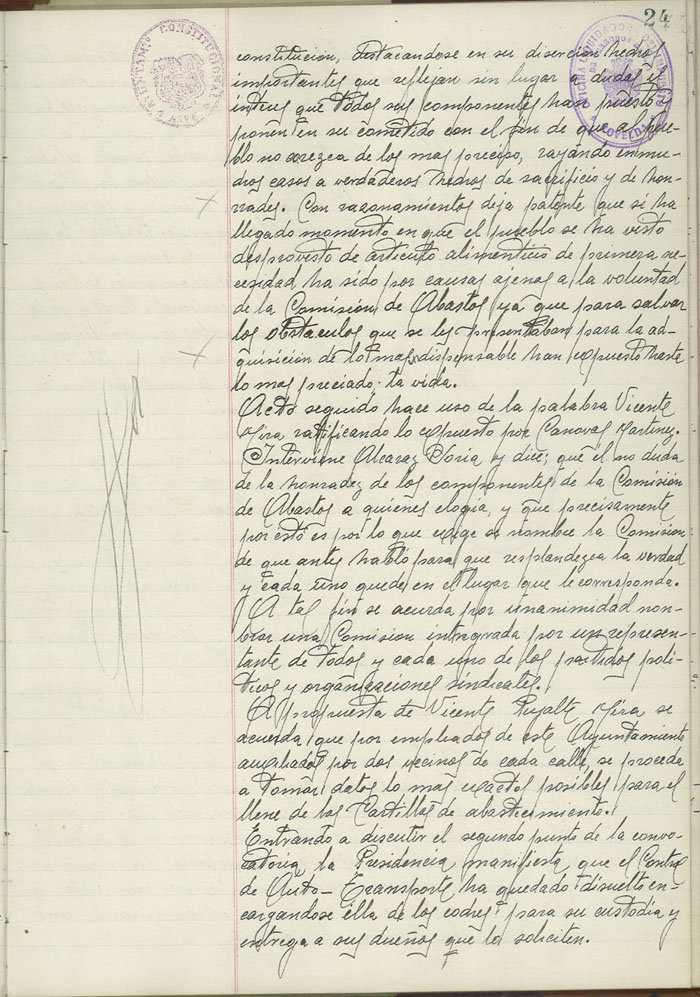 24
AYUNTAMTO CONSTITUCIONAL
constitución, destacandose en su diserción hechos
importantes que reflejan sin lugar a dudas el
interes que todos sus componentes han puesto y
ponen en su cometido con el fin de que al pue-
blo no carezca de los mas preciso, rayando en mu-
chos casos a verdaderos hechos de sacrificio y de hon-
radez. Con razonamientos deja patente que si ha
llegado momento en que el pueblo se ha visto
desprovisto de articulo alimenticio de primera ne-
cesidad, ha sido por causas ajenas a la voluntad
de la Comisión de Abastos ya que para salvar
los obstaculos que se les presentaban para la ad-
quisición de lo mas indispensable han expuesto hasta
lo mas preciado; la vida.
Acto seguido hace uso de la palabra Vicente
Mira ratificando lo expuesto por Canovas Martinez.
Interviene Alcaraz Soria y dice; que él no duda
de la honradez de los componentes de la Comisión
de Abastos a quienes elogia, y que precisamente
por ésto es por lo que exige se nombre la Comisión
de que antes habló para que resplandezca la verdad
y cada uno quede en el lugar que le corresponda.
A tal fin se acuerda por unanimidad nom-
brar una Comision integrada por un represen-
tante de todos y cada uno de los partidos poli-
ticos y organizaciones sindicales.
A propuesta de Vicente Mira se
acuerda que por empleados de este Ayuntamiento
auxiliados por dos vecinos de cada calle, se proceda
a tomar datos lo mas exactos posibles para el
llene de las Cartillas de abastecimiento.
Entrando a discutir el segundo punto de la convo-
catoria la Presidencia manifiesta que el Control
de Auto-Transporte ha quedado disuelto en-
cargandose ella de los coches para su custodia y
entrega a sus dueños que lo soliciten.